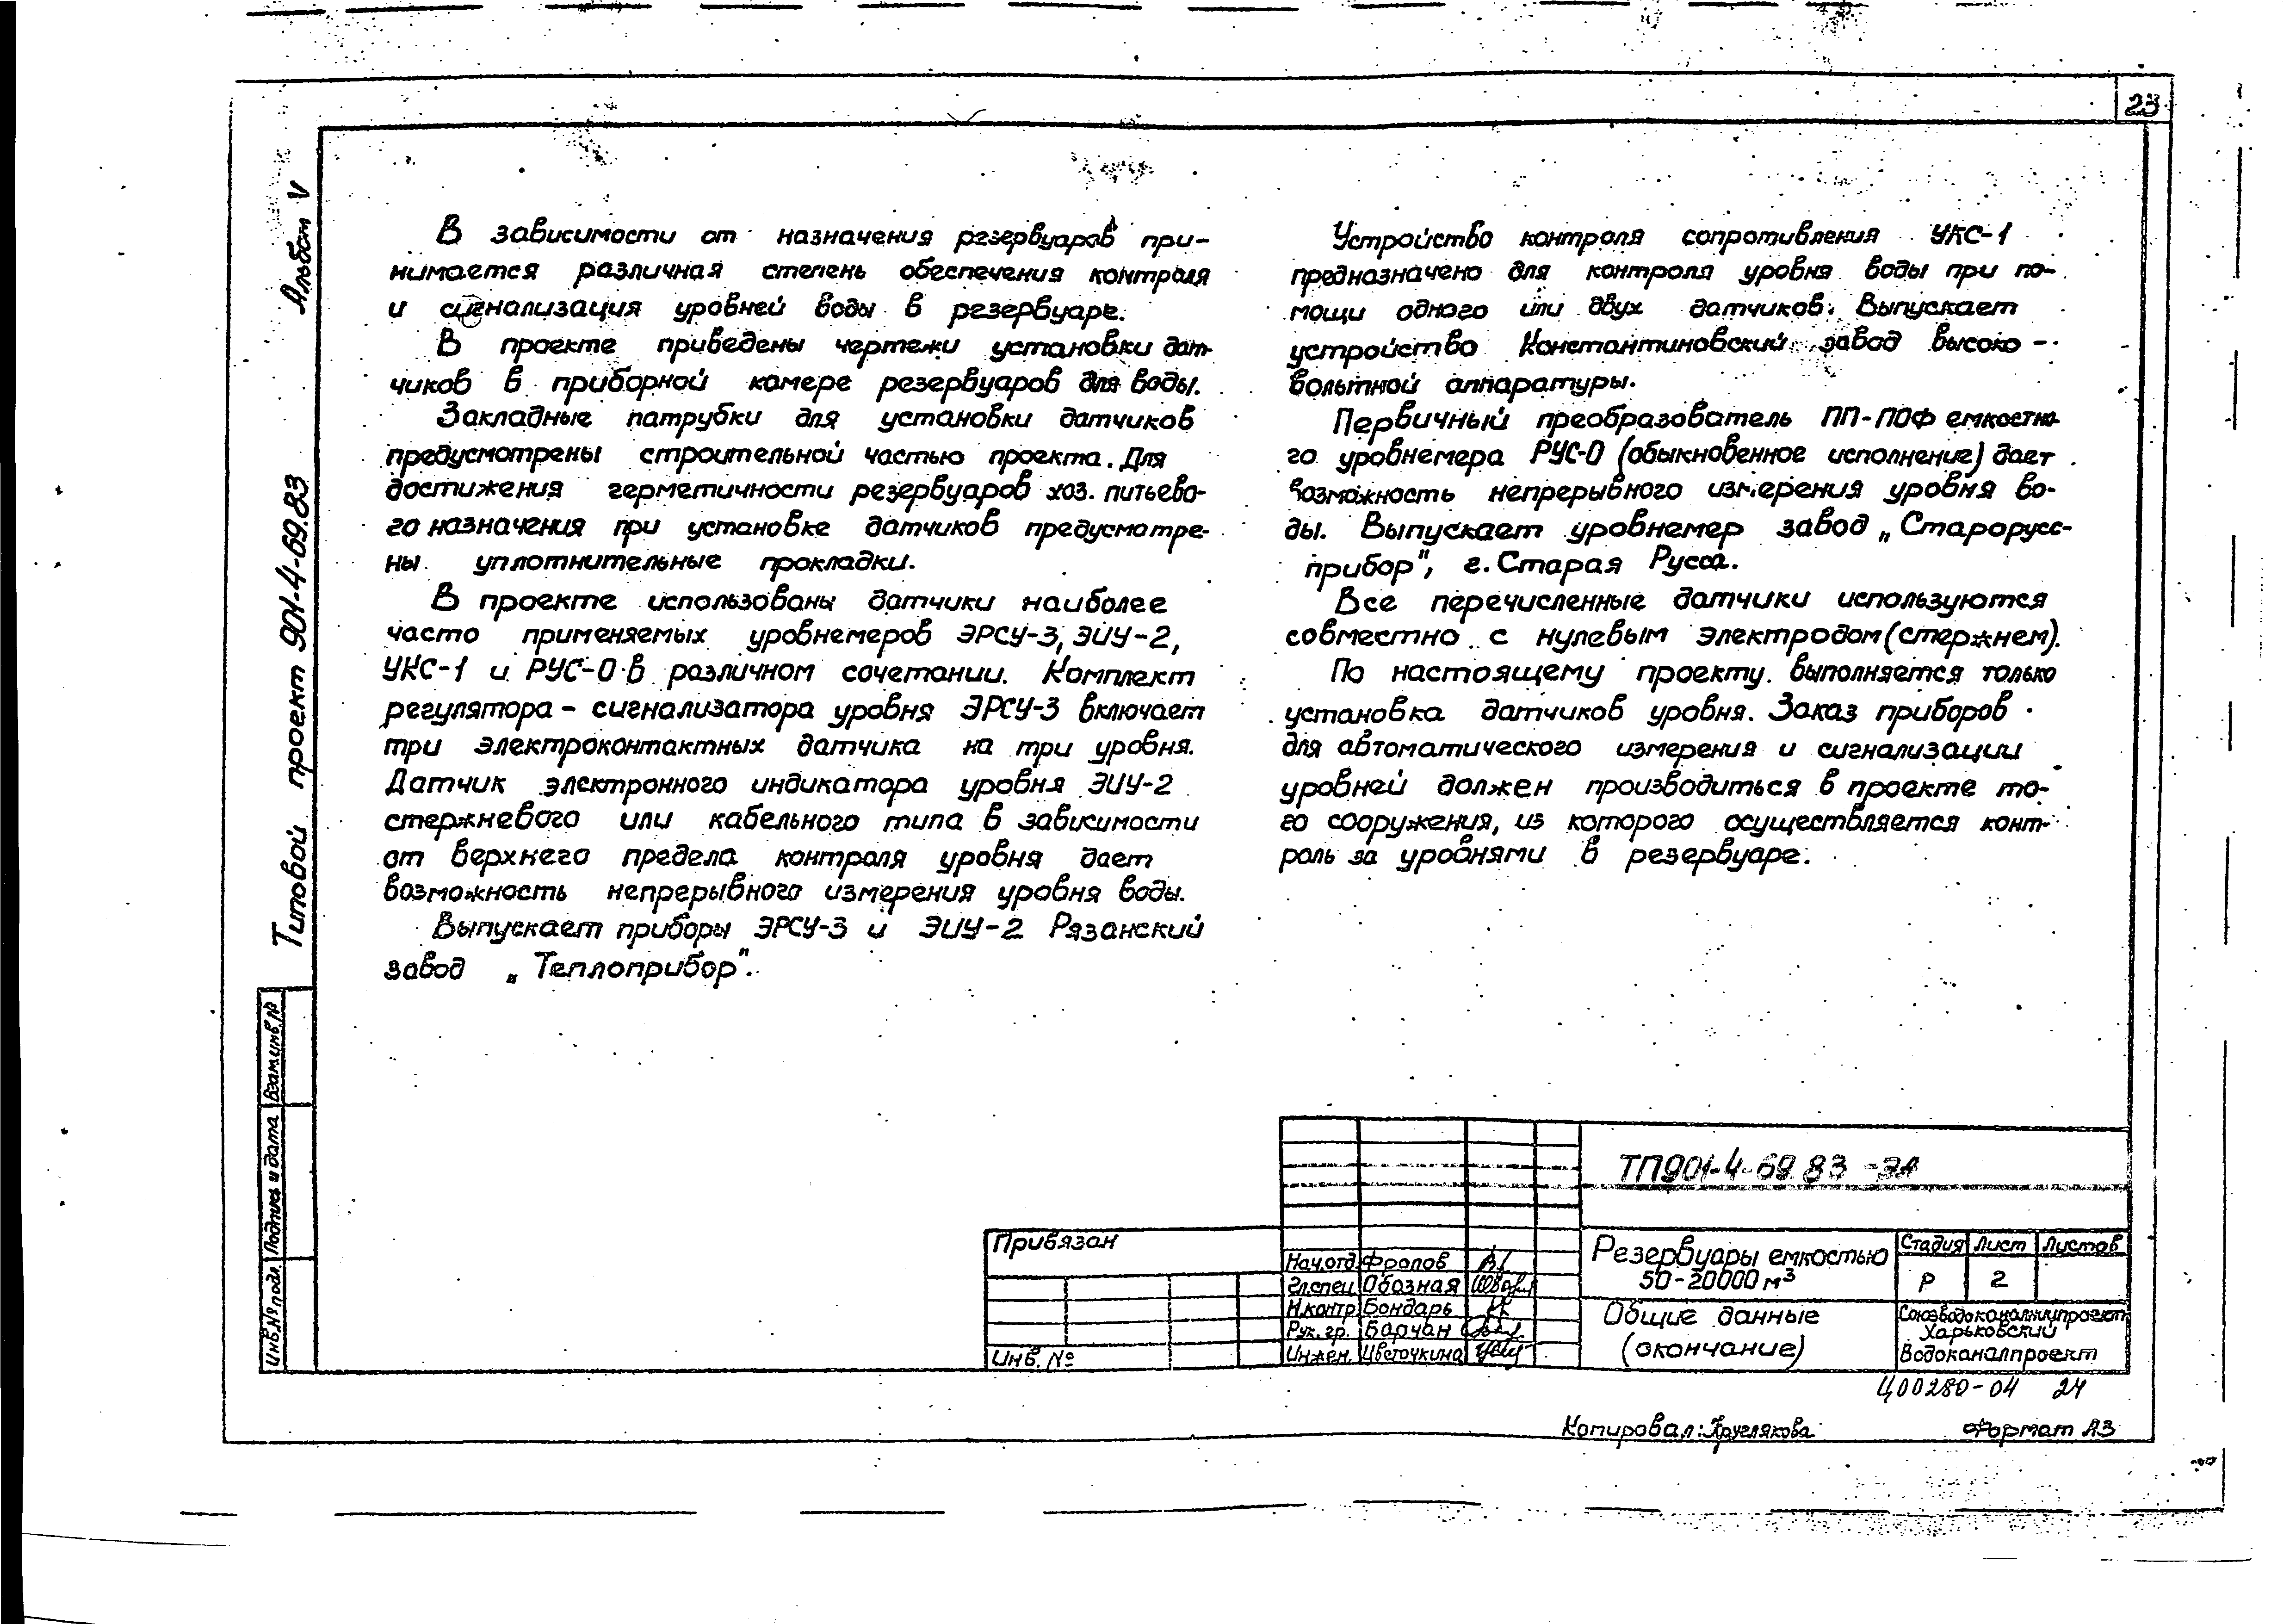 23
Альбом V
Типовой проект 901-4-69.83
В зависимости от назначения резервуаров при-
нимается различная степень обеспечения контроля
и сигнализация уровней воды в резервуаре.
В проекте приведены чертежи установки дат-
чиков в приборной камере резервуаров для воды.
Закладные патрубки для установки датчиков
предусмотрены строительной частью проекта. Для
достижения герметичности резервуаров хоз. питьево-
го назначения при установке датчиков предусмотре-
ны уплотнительные прокладки.
В проекте использованы датчики наиболее
часто применяемых уровнемеров ЭРСУ-3, ЭИУ-2,
УКС-1 и РУС-О в различном сочетании. Комплект
регулятора - сигнализатора уровня ЭРСУ-3 включает
три электроконтактных датчика на три уровня.
Датчик электронного индикатора уровня ЭИУ-2
стержневого или кабельного типа в зависимости
от верхнего предела контроля уровня дает
возможность непрерывного измерения уровня воды.
Выпускает приборы ЭРСУ-3 и ЭИУ-2 Рязанский
завод „Теплоприбор".
Устройство контроля сопротивления УКС-1
предназначено для контроля уровня воды при по-
мощи одного или двух датчиков. Выпускает
устройство Константиновский завод высоко-
вольтной аппаратуры.
Первичный преобразователь ПП-ПОФ емкостно-
го уровнемера РУС-О (обыкновенное исполнение) дает
возможность непрерывного измерения уровня во-
ды. Выпускает уровнемер завод „Старорусс-
прибор", г. Старая Русса.
Все перечисленные датчики используются
совместно с нулевым электродом (стержнем).
По настоящему проекту выполняется только
установка датчиков уровня. Заказ приборов
для автоматического измерения и сигнализации
уровней должен производиться в проекте то-
го сооружения, из которого осуществляется конт-
роль за уровнями в резервуаре.
Взам.инв.№
Подпись и дата
Инв.№ подл.
ТП901-4-69.83 -ЭА
Привязан
Инв. №
Нач.отд. Фролов
Гл.спец. Обозная
Н.контр. Бондарь
Рук. гр. Барчан
Инжен. Цветочкина
Резервуары емкостью
50-20000 м³
Стадия Лист Листов
Р 2
Общие данные
(окончание)
Союзводоканалниипроект
Харьковский
Водоканалпроект
Ц00280-04 24
Копировал: Круглякова
Формат А3